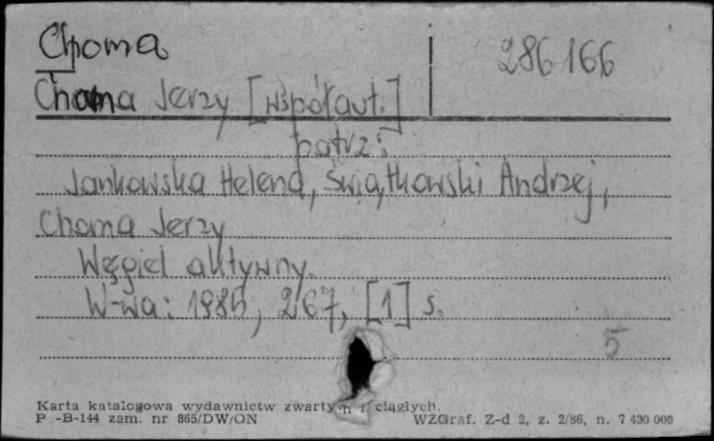 Choma
286166
Choma Jerzy [współaut.]
patrz:
Jankowska Helena, Świątkowski Andrzej,
Choma Jerzy
Węgiel aktywny.
W-wa: 1985, 267, [1] s.
5
Karta katalogowa wydawnictw zwartych i ciągłych.
P -B-144 zam. nr 865/DW/ON
WZGraf. Z-d 2, z. 2/86, n. 7 430 000